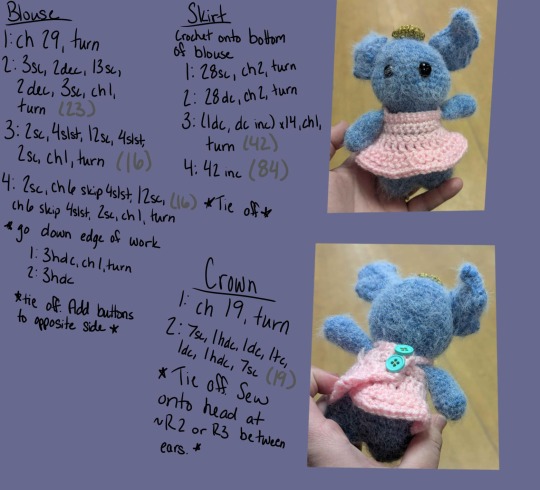 Blouse
1: ch 29, turn
2: 3sc, 2dec, 13sc,
2dec, 3sc, ch1,
turn (23)
3: 2sc, 4slst, 12sc, 4slst,
2sc, ch1, turn (16)
4: 2sc, ch6 skip 4slst, 12sc, (16)
ch6 skip 4slst, 2sc, ch1, turn
*go down edge of work
1: 3hdc, ch1, turn
2: 3hdc
*tie off. Add buttons
to opposite side*
Skirt
Crochet onto bottom
of blouse
1: 28sc, ch2, turn
2: 28dc, ch2, turn
3: (1dc, dc inc) x14, ch1,
turn (42)
4: 42 inc (84)
*Tie off*
Crown
1: ch 19, turn
2: 7sc, 1hdc, 1dc, 1tc,
1dc, 1hdc, 7sc (19)
* Tie off Sew
onto head at
~R2 or R3 between
ears.*